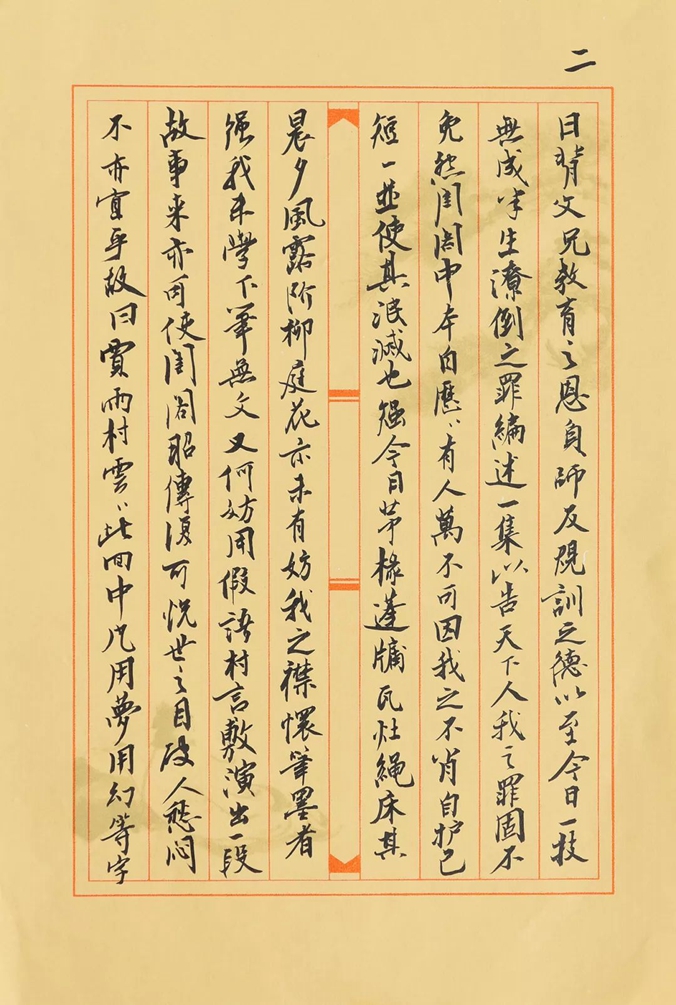 二
日背父兄教育之恩負師友規訓之德以至今日一技
無成半生潦倒之罪編述一集以告天下人我之罪固不
免然閨閣中本自歷〻有人萬不可因我之不肖自护己
短一並使其泯滅也强今日茅椽蓬牖瓦灶繩床其
晨夕風露階柳庭花亦未有妨我之襟懷筆墨者
强我未學下筆無文又何妨用假語村言敷演出一段
故事来亦可使閨閣昭傳復可悦世之目破人愁闷
不亦宜乎故曰賈雨村雲〻此回中凡用夢用幻等字